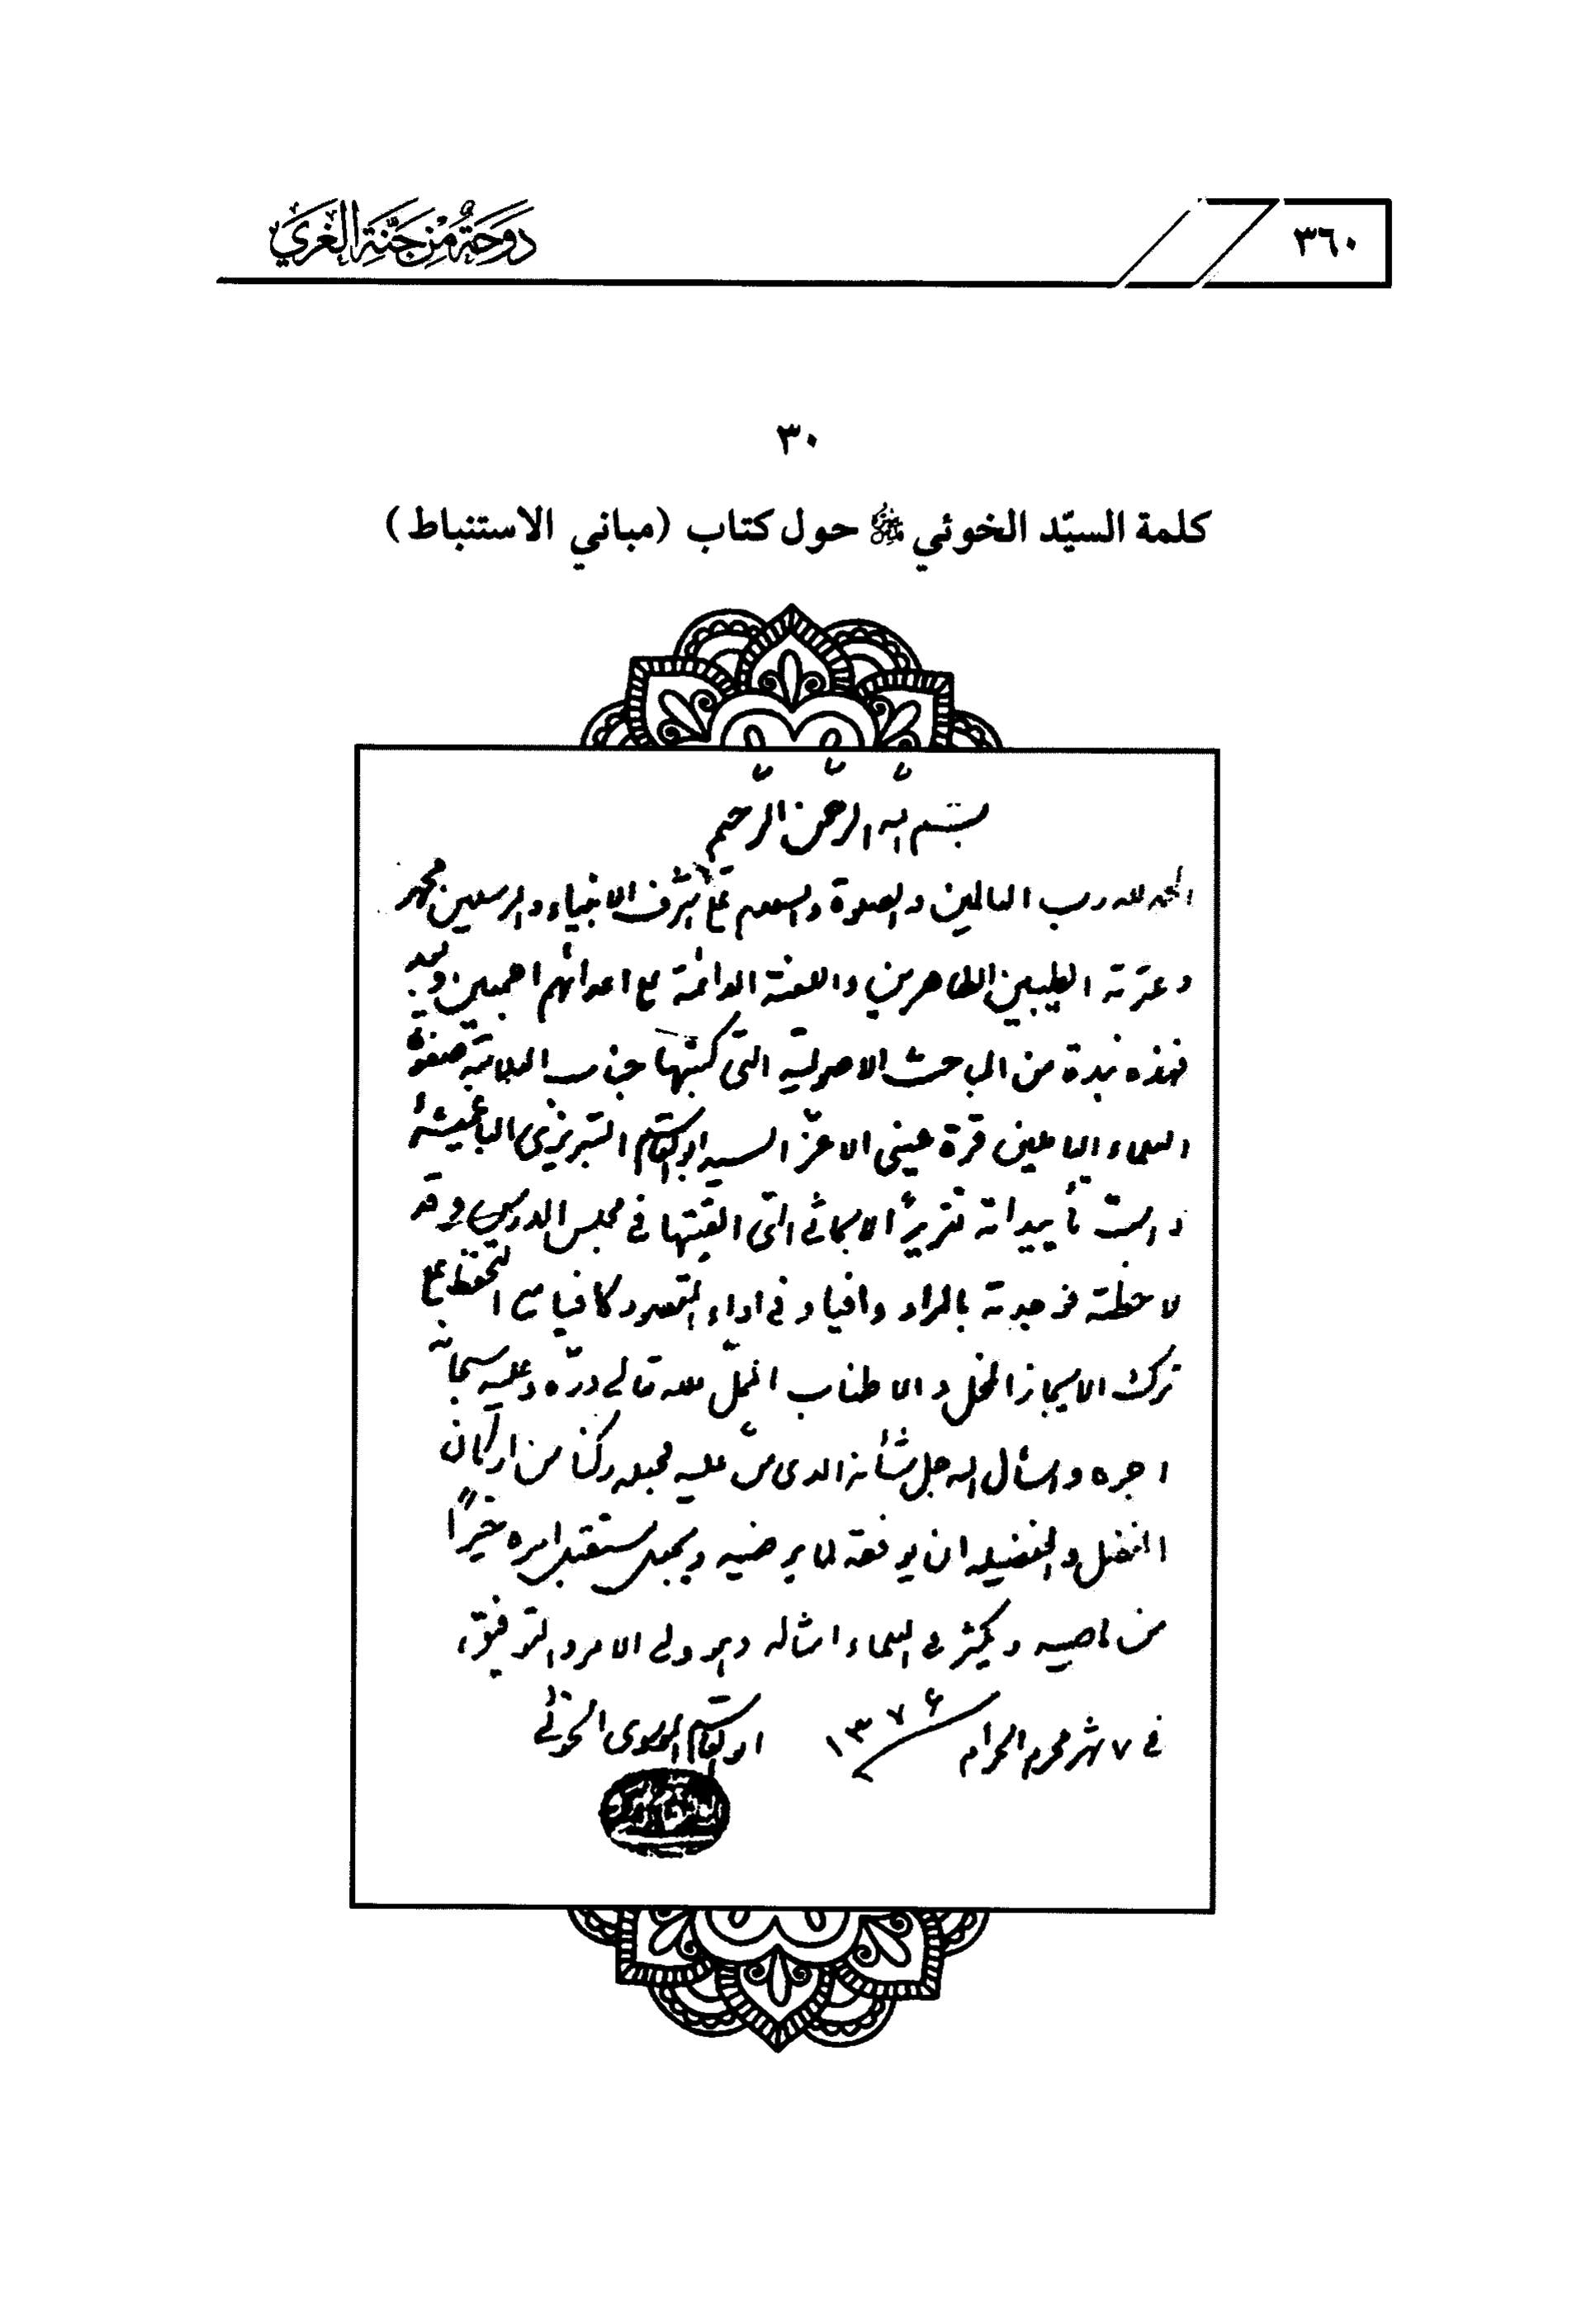 ٣٦٠
دوحة من جنة الغري
٣٠
كلمة السيّد الخوئي حول كتاب (مباني الاستنباط)
بسم الله الرحمن الرحيم
الحمد لله رب العالمين والصلوة والسلام على اشرف الانبياء والمرسلين محمد
وعترته الطيبين الطاهرين واللعنة الدائمة على اعدائهم اجمعين وبعد
فهذه نبذة من المباحث الاصولية التي كتبها جناب العلامة صفوة
العلماء العاملين قرة عيني الاعز السيد ابو القاسم التبريزي
دامت تأييداته تقريرًا لابحاثي التي القيتها في مجلس الدرس وقد
لاحظته فوجدته بالمراد وافيا وفي اداء المقصود كافيا مع التحفظ على
ترك الايجاز المخل والاطناب الممل فلله تعالى درّه وعليه سبحانه
اجره واسأل الله جل شأنه الذي منّ عليه فجعله ركنا من اركان
الفضل والفضيلة ان يوفقه لما يرضيه ويجعل مستقبل امره خيرًا
من ماضيه ويكثر في العلماء امثاله وهو ولي الامر والتوفيق
في ٧ شهر محرم الحرام ١٣٧٦ ابو القاسم الموسوى الخوئي